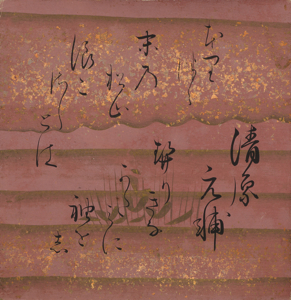 清原
元輔
契りきな
かたみに
袖を
志
本里
つゝ
末乃
松山
浪こ
さしとは